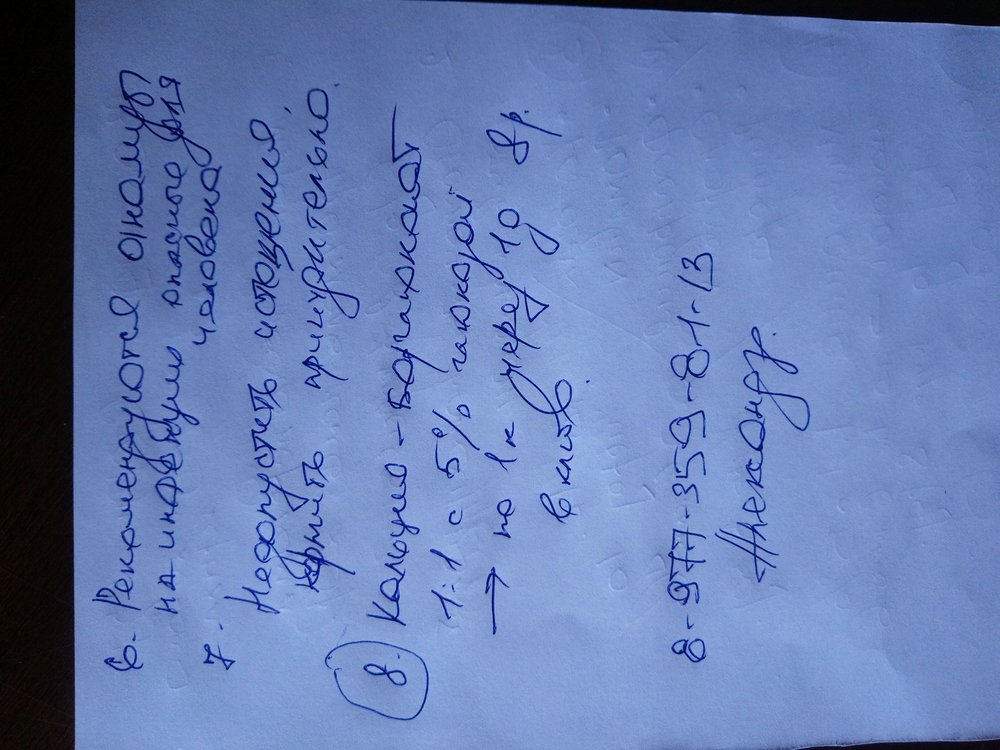 6. Рекомендуются анализы
на инфекции опасные для
человека
7. Недопустить истощения,
кормить принудительно.
8. Кальция-борглюконат
1:1 с 5% глюкозой
→ по 1к через 1д 8р.
в клоаку.
8-977-359-81-13
Александр.